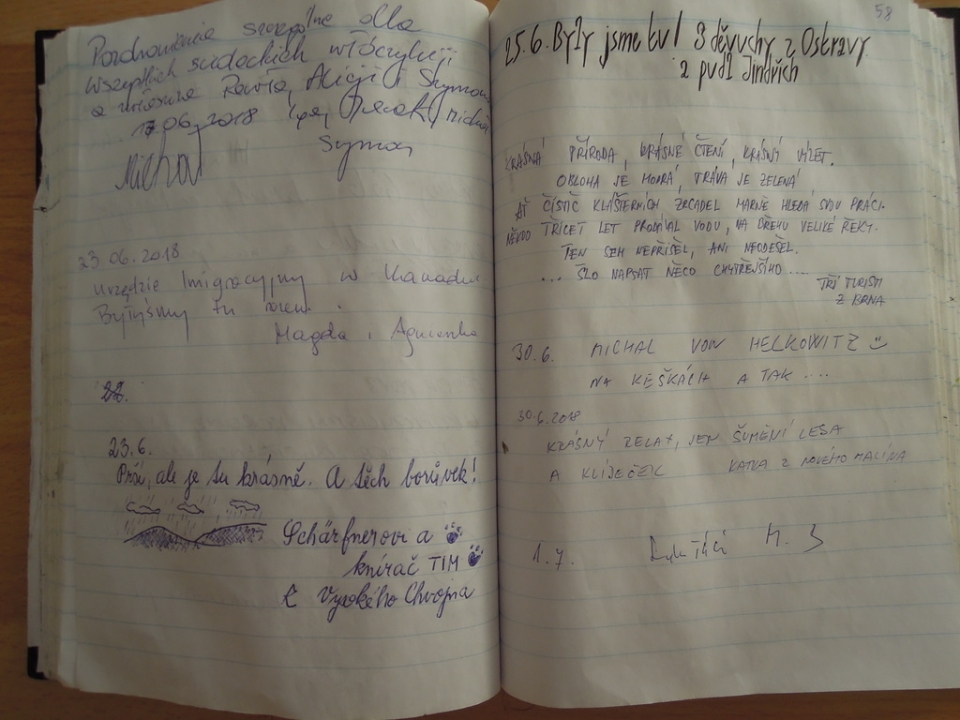 Pozdrowienia szczególne dla
wszystkich sudeckich włóczykiji
a
17.06.2018
Michał
Szymon
23.06.2018
Urzędzie Imigracyjny w Kanadzie
Byłyśmy tu razem.
Magda i Agnieszka
23.6.
Prší, ale je tu krásně. A těch borůvek!
Schärfnerovi a
knírač TIM
Z Vysokého Chvojna
58
25.6. Byly jsme tu! 3 děvuchy z Ostravy
a pudl Jindřich
KRÁSNÁ PŘÍRODA, KRÁSNÉ ČTENÍ, KRÁSNÝ VÝLET.
OBLOHA JE MODRÁ, TRÁVA JE ZELENÁ
AŤ ČISTIČ KLÁŠTERNÍCH ZRCADEL MARNĚ HLEDÁ SVOU PRÁCI.
NĚKDO TŘICET LET PROMÝVAL VODU, NA BŘEHU VELIKÉ ŘEKY.
TEN SEM NEPŘIŠEL, ANI NEODEŠEL.
... ŠLO NAPSAT NĚCO CHYTŘEJŠÍHO ...
TŘI TURISTI
Z BRNA
30.6. MICHAL VON HELKOWITZ
NA KEŠKÁCH A TAK ....
30.6.2018
KRÁSNÝ RELAX, JEN ŠUMĚNÍ LESA
A KLIDEČEK KATKA Z NOVÉHO MALÍNA
1.7. M. J